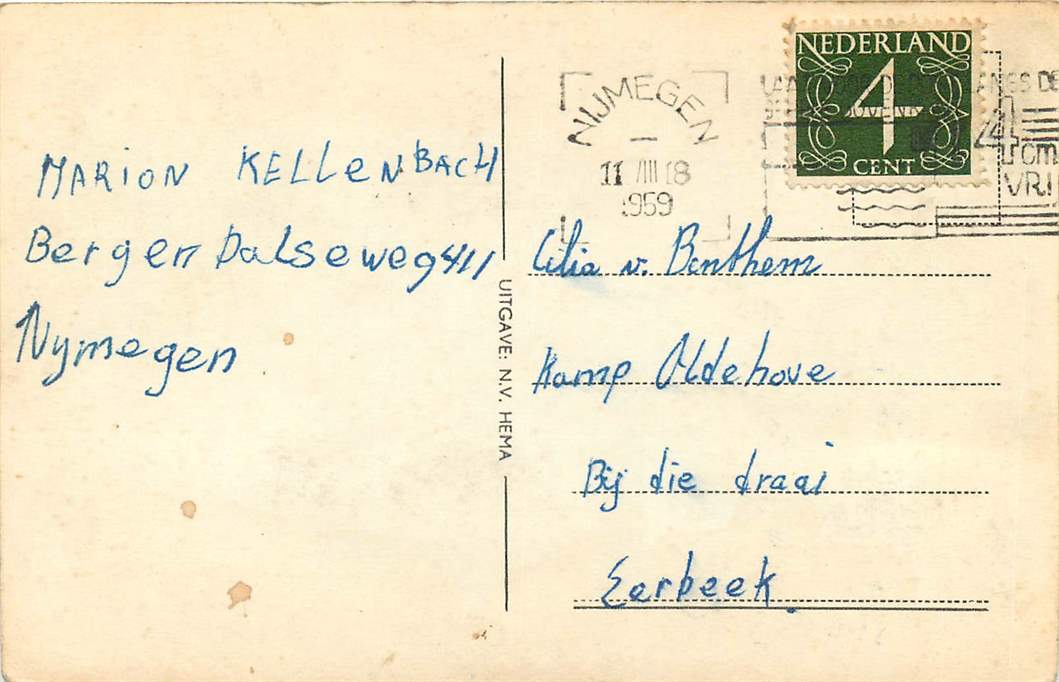 MARION KELLENBACH
Bergen Dalseweg 411
Nymegen
UITGAVE: N.V. HEMA
NIJMEGEN
11 VIII 18
1959
NEDERLAND
4
CENT
Cilia v. Benthem
Kamp Oldehove
Bij die draai
Eerbeek